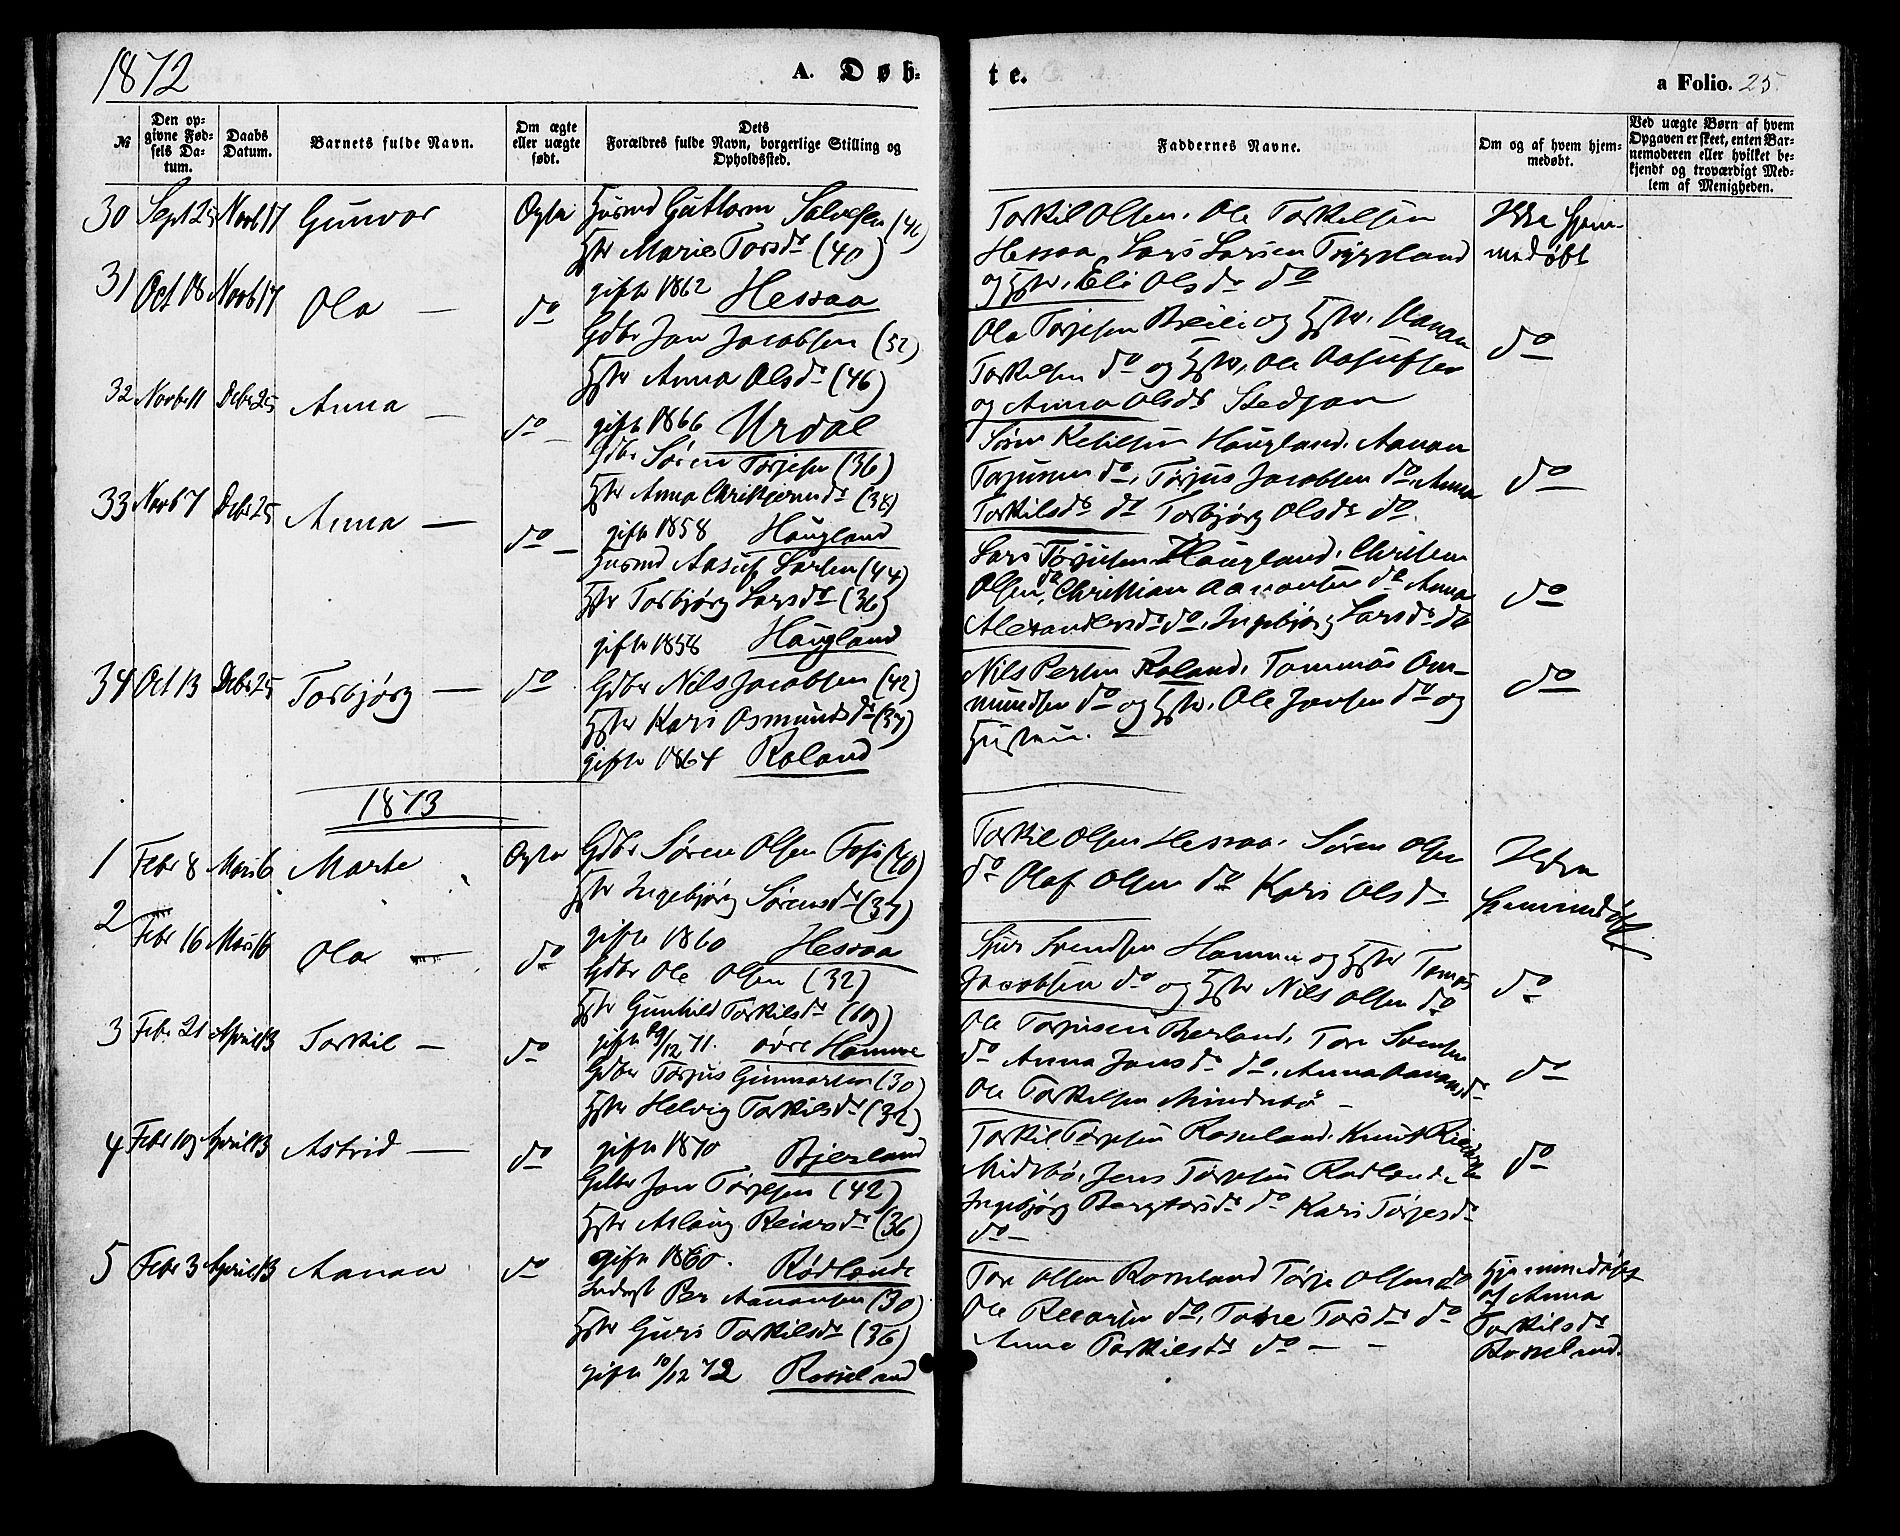 1872
A. Døb-
te.
a Folio. 25.
№
Den op-
givne Fød-
sels Da-
tum.
Daabs
Datum.
Barnets fulde Navn.
Om ægte
eller uægte
født.
Dets
Forældres fulde Navn, borgerlige Stilling og
Opholdssted.
Faddernes Navne.
Om og af hvem hjem-
medøbt.
Ved uægte Børn af hvem
Opgaven er skeet, enten Bar-
nemoderen eller hvilket be-
kjendt og troværdigt Med-
lem af Menigheden.
30 Sept 25 Novb 17 Gunvor Ægte Husmd Guttorm Salvesen (46)
Hstr Marie Torsdr (40)
gifte 1862 Hessaa
Torkil Olsen, Ole Torkelsen
Hessaa, Lars Larsen Trygsland
og Hstr, Eli Olsdr do
Ikke hjem-
medøbt
31 Oct 18 Novb 17 Ola — do Gdbr Jon Jacobsen (52)
Hstr Anna Olsdr (46)
gifte 1866 Urdal
Ole Torjesen Breili og Hstr, Aanon
Torkelsen do og Hstr, Ole Aasulfsen
og Anna Olsdr Stedjan
do
32 Novb 11 Decbr 25 Anna — do — Gdbr Søren Torjesen (36)
Hstr Anna Christensdr (38)
gifte 1858 Haugland
Søren Ketilsen Haugland, Aanon
Torjusen do, Torjus Jacobsen do, Anna
Torkilsdr do Torbjørg Olsdr do
do
33 Novb 7 Decbr 25 Anna — do — Husmd Aasulf Larsen (44)
Hstr Torbjørg Larsdr (36)
gifte 1858 Haugland
Lars Torjusen Haugland, Christen
Olsen do, Christian Aanonsen do Anna
Alexandersdr do, Ingebjørg Larsdr do
do
34 Oct 13 Decbr 25 Torbjørg — do Gdbr Nils Jacobsen (42)
Hstr Kari Osmundsdr (37)
gifte 1864 Roland
Nils Persen Roland, Tommas Om-
mundsen do og Hstr, Ole Jonsen do og
Hustru.
do
1873
1 Febr 8 Mars 16 Marte Ægte Gdbr Søren Olsen Foss (40)
Hstr Ingebjørg Sørensdr (37)
gifte 1860 Hessaa
Torkil Olsen Hessaa, Søren Olsen
do Olaf Olsen do Kari Olsdr
Ikke
hjemmedøbt
2 Febr 16 Mars 16 Ola — do Gdbr Ole Olsen (32)
Hstr Gunhild Torkilsdr (19)
gifte 29/12 71. øvre Homme
Svendsen Homme og Hstr
Jacobsen do og Hstr Nils Olsen do
do
3 Febr 21 April 13 Torkil — do Gdbr Torjus Gunnarsen (30)
Hstr Helvig Torkilsdr (32)
gifte 1870 Bjerland
Ole Torjusen Bjerland, Tore
do Anna Jonsdr do, Anna Aanonsdr
Ole Torkelsen Mindebø —
do
4 Febr 19 April 13 Astrid — do Gdbr Jon Torjesen (42)
Hstr Aslaug Reiarsdr (36)
gifte 1860. Rødlande
Torkil Torjesen Roseland, Knut
Midtbø, Jens Torjesen Rødland
Ingebjørg Bergtorsdr do Kari Torjesdr
do —
do
5 Febr 3 April 13 Aanon do Inderst Per Aanonsen (30)
Hstr Guri Torkilsdr (36)
gifte 10/12 72 Rosseland
Tore Olsen Rosseland Torje Olsen do
Ole Reiarsen do, Tone Torsdr do
Anne Torkilsdr do — —
Hjemmedøbt
af Anna
Torkilsdr
Rosseland.